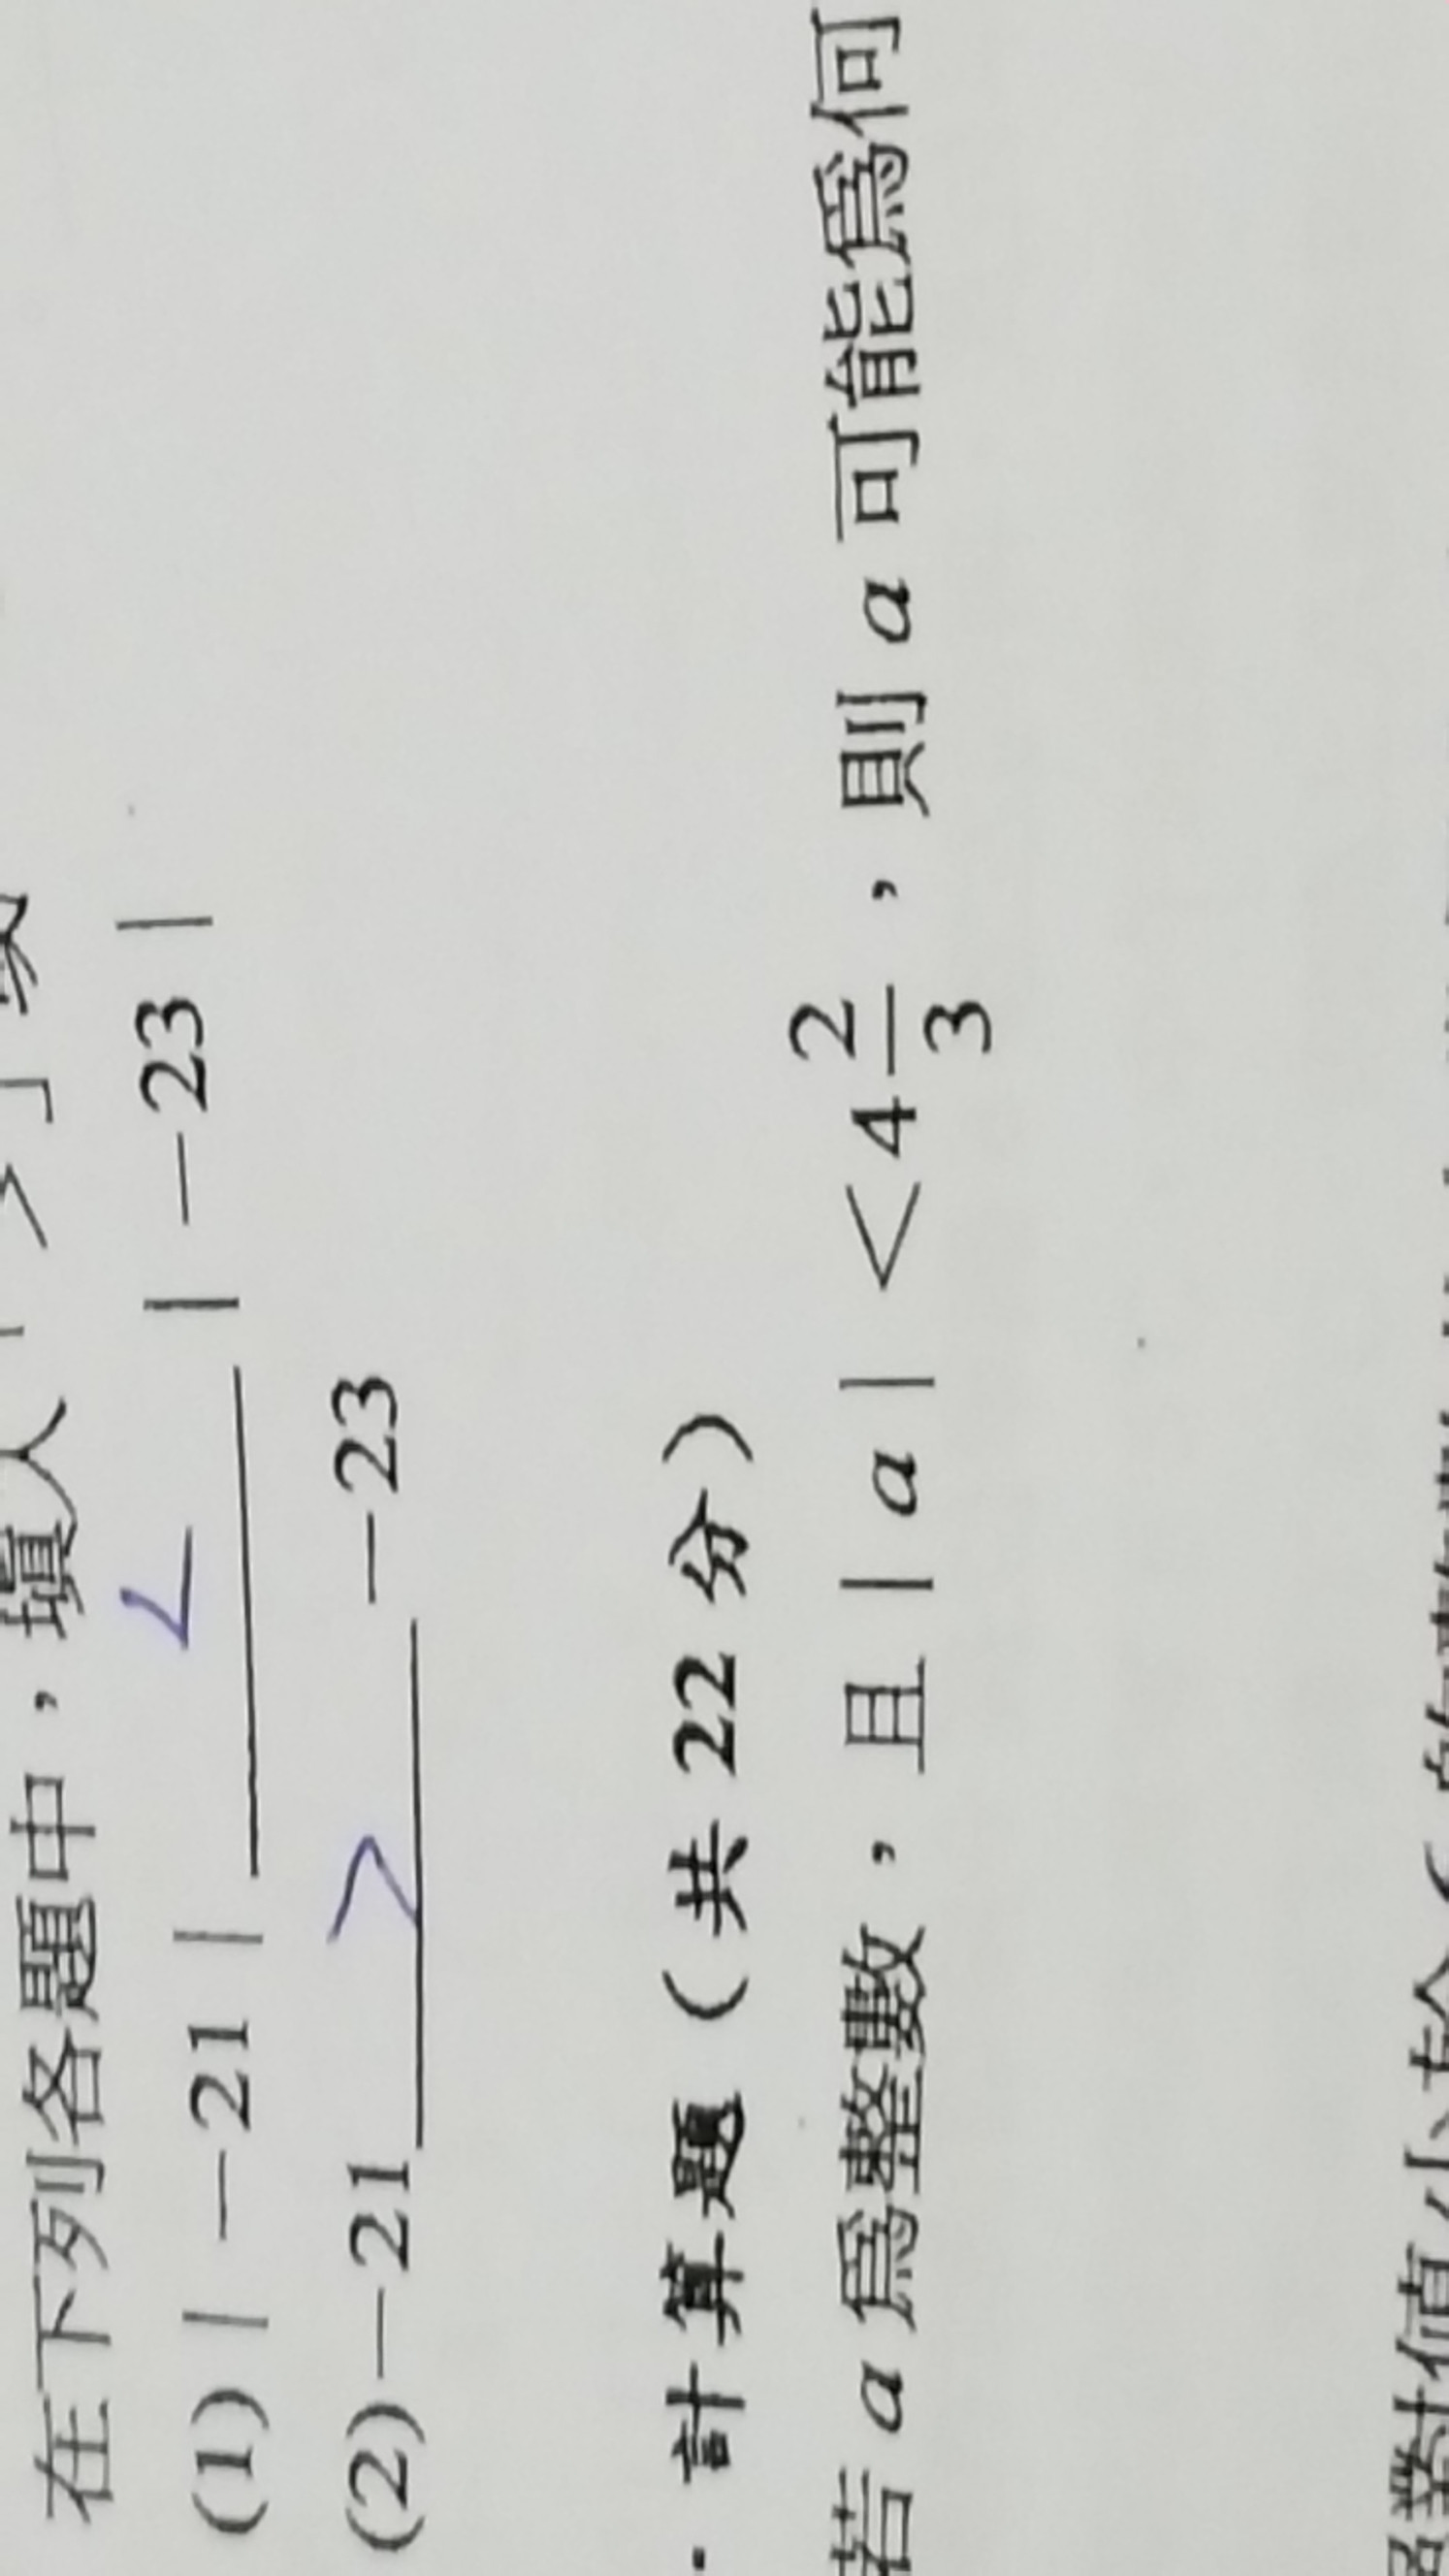 在下列各題中，填入「>」或
(1)｜−21｜ < ｜−23｜
(2)−21 > −23
．計算題（共 22 分）
若 a 為整數，且｜a｜< 4 2/3，則 a 可能為何